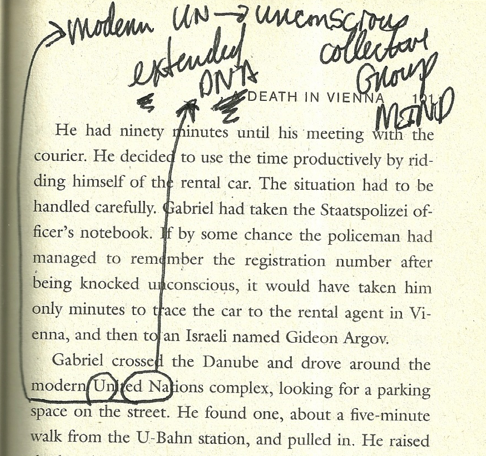 modern UN → unconscious
collective
extended
Group
DNA
MIND
DEATH IN VIENNA
He had ninety minutes until his meeting with the
courier. He decided to use the time productively by rid-
ding himself of the rental car. The situation had to be
handled carefully. Gabriel had taken the Staatspolizei of-
ficer's notebook. If by some chance the policeman had
managed to remember the registration number after
being knocked unconscious, it would have taken him
only minutes to trace the car to the rental agent in Vi-
enna, and then to an Israeli named Gideon Argov.
Gabriel crossed the Danube and drove around the
modern United Nations complex, looking for a parking
space on the street. He found one, about a five-minute
walk from the U-Bahn station, and pulled in. He raised